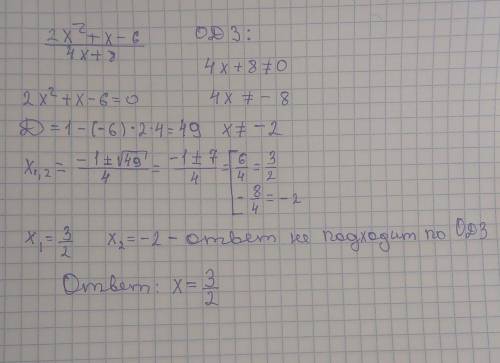 (2x² + x - 6)/(4x + 8)
ОДЗ:
4x + 8 ≠ 0
4x ≠ - 8
x ≠ - 2
2x² + x - 6 = 0
Д = 1 - (-6) · 2 · 4 = 49
x₁,₂ = (-1 ± √49)/4 = (-1 ± 7)/4 = [ 6/4 = 3/2
- 8/4 = -2
x₁ = 3/2 x₂ = -2 - ответ не подходит по ОДЗ
Ответ: x = 3/2